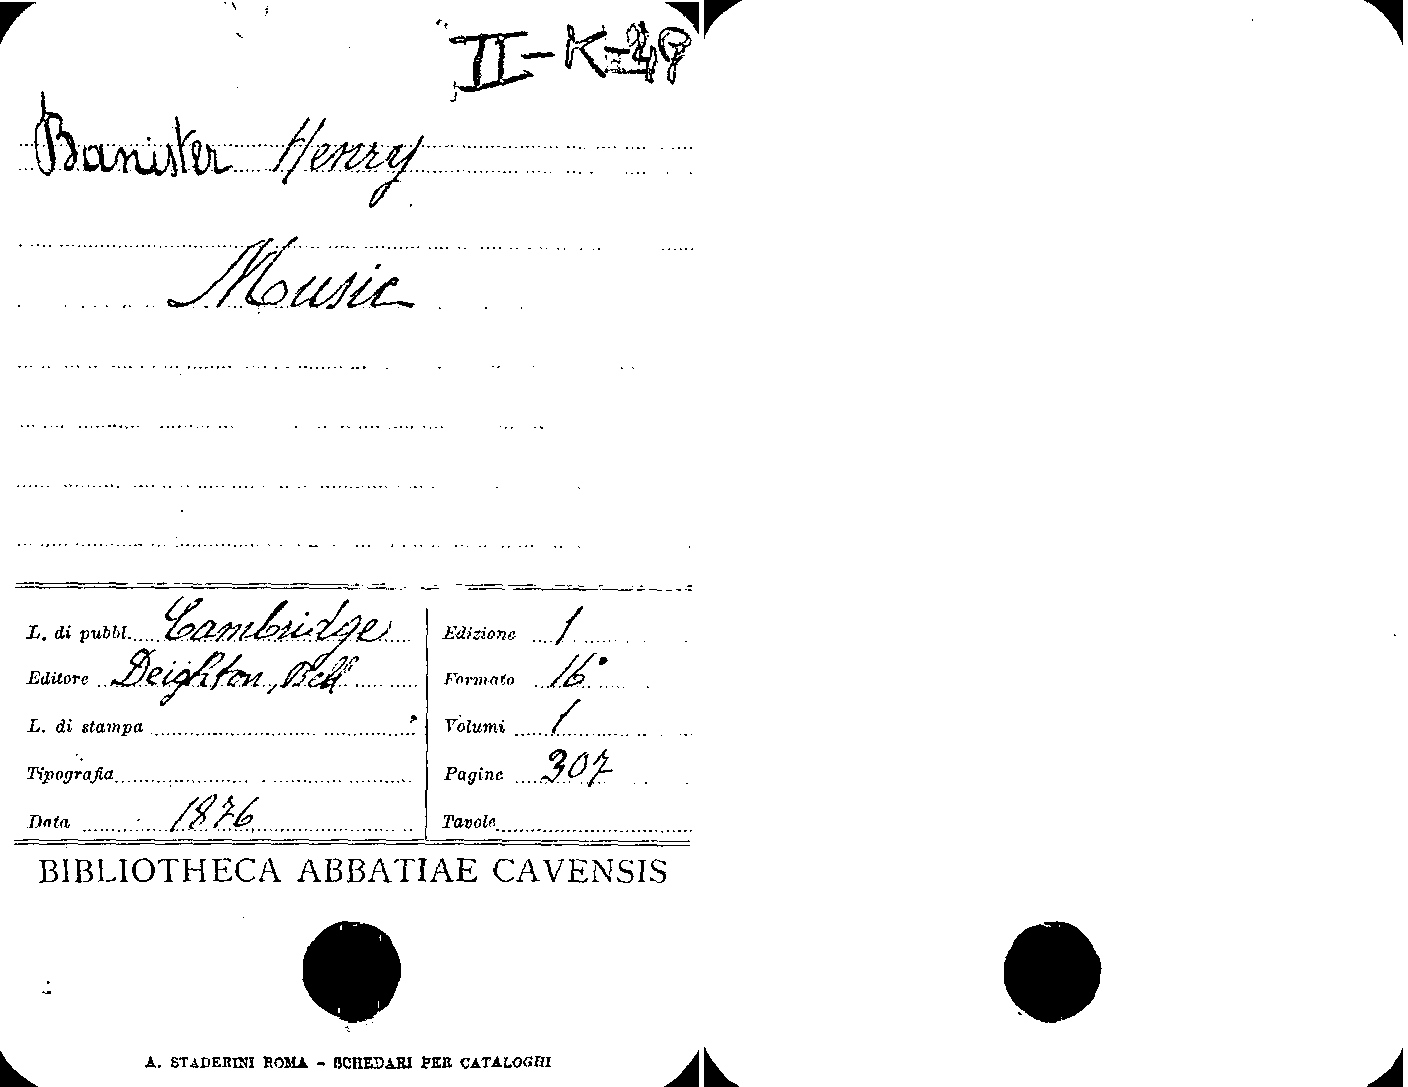 II-K-48
Banister Henry
Music
L. di pubbl. Cambridge
Editore Deighton, Bell
L. di stampa
Tipografia
Data 1876
Edizione 1
Formato 16°
Volumi 1
Pagine 307
Tavole
BIBLIOTHECA ABBATIAE CAVENSIS
A. STADERINI ROMA - SCHEDARI PER CATALOGHI